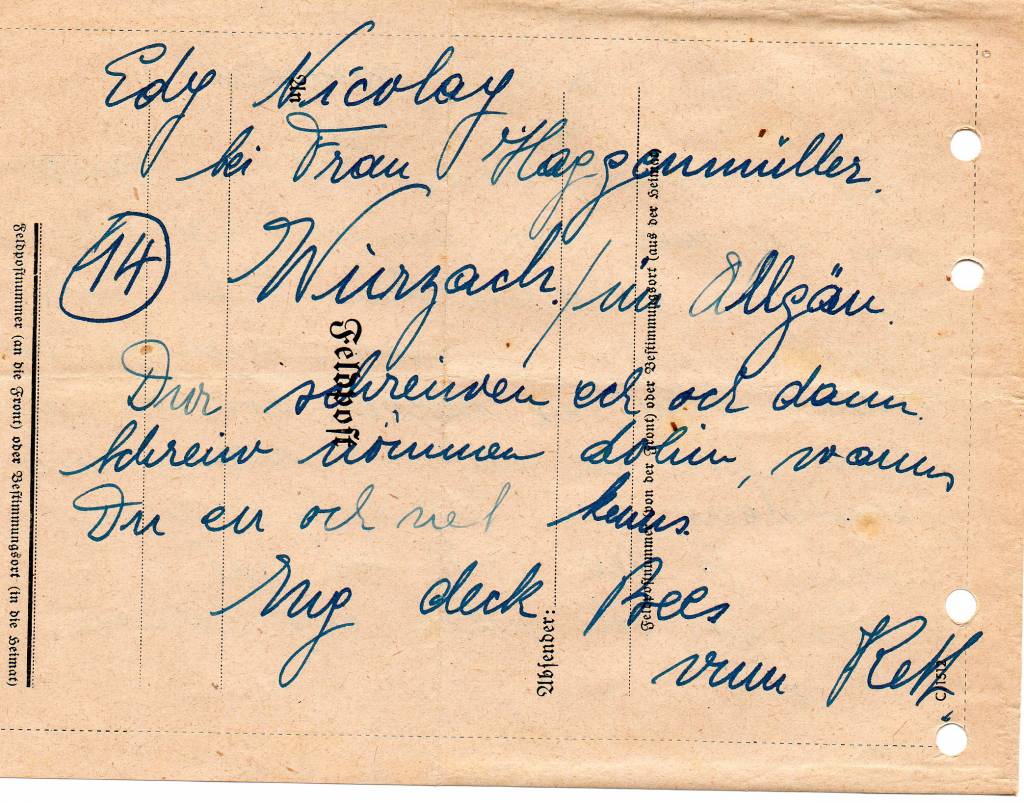 Edy Nicolay
bei Frau Haggenmüller.
(14) Wurzach. / im Allgäu.
Duor schreiwen ech och dann.
Schreiw nömmen dohin, wanns
Du en och net kenns.
Eng deck Bees
vum Kett.
An
Feldpost
Absender:
Feldpostnummer (an die Front) oder Bestimmungsort (in die Heimat)
Feldpostnummer (von der Front) oder Bestimmungsort (aus der Heimat)
C/1512